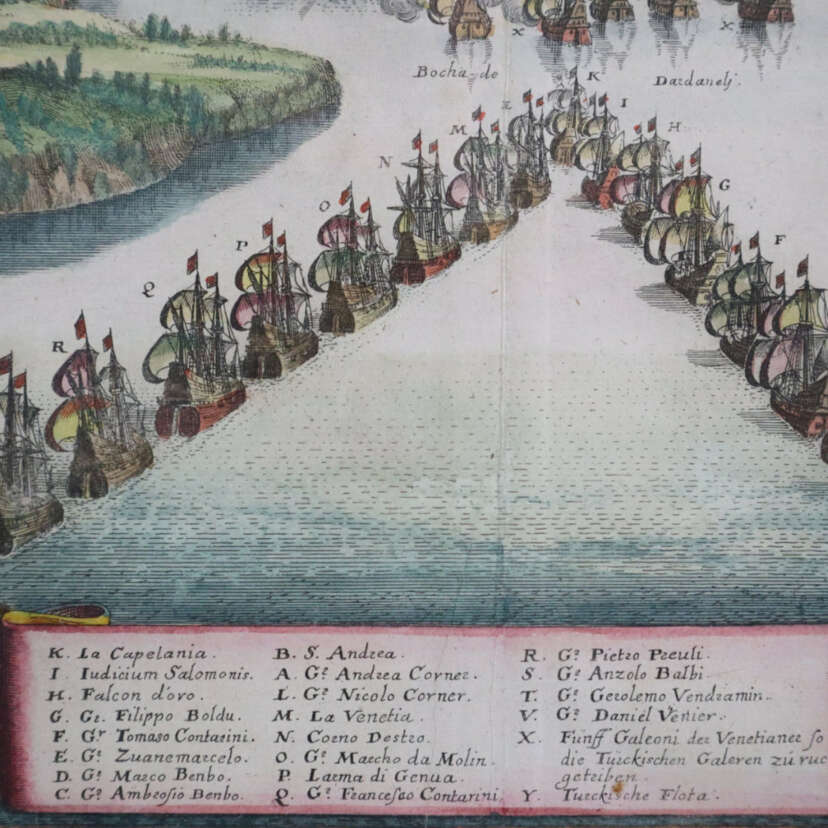 X
X
Bocha de
Dardanelj.
K
I
H
G
F
L
M
N
O
P
Q
R
K. La Capelania.
I. Iudicium Salomonis.
H. Falcon d'oro.
G. Gr. Filippo Boldu.
F. Gr Tomaso Contarini.
E. Gr. Zuanemarcelo.
D. Gr. Marco Benbo.
C. Gr. Ambrosio Benbo.
B. S. Andrea.
A. Gr. Andrea Corner.
L. Gr. Nicolo Corner.
M. La Venetia.
N. Coeno Destro.
O. Gr. Marcho da Molin.
P. Larma di Genua.
Q. Gr. Francesco Contarini
R. Gr. Pietro Preuli.
S. Gr. Anzolo Balbi.
T. Gr. Gerolemo Vendramin.
V. Gr. Daniel Venier.
X. Fünff Galeoni der Venetianer so
die Türckischen Galeren zúruc
getriben.
Y. Türckische Flota.